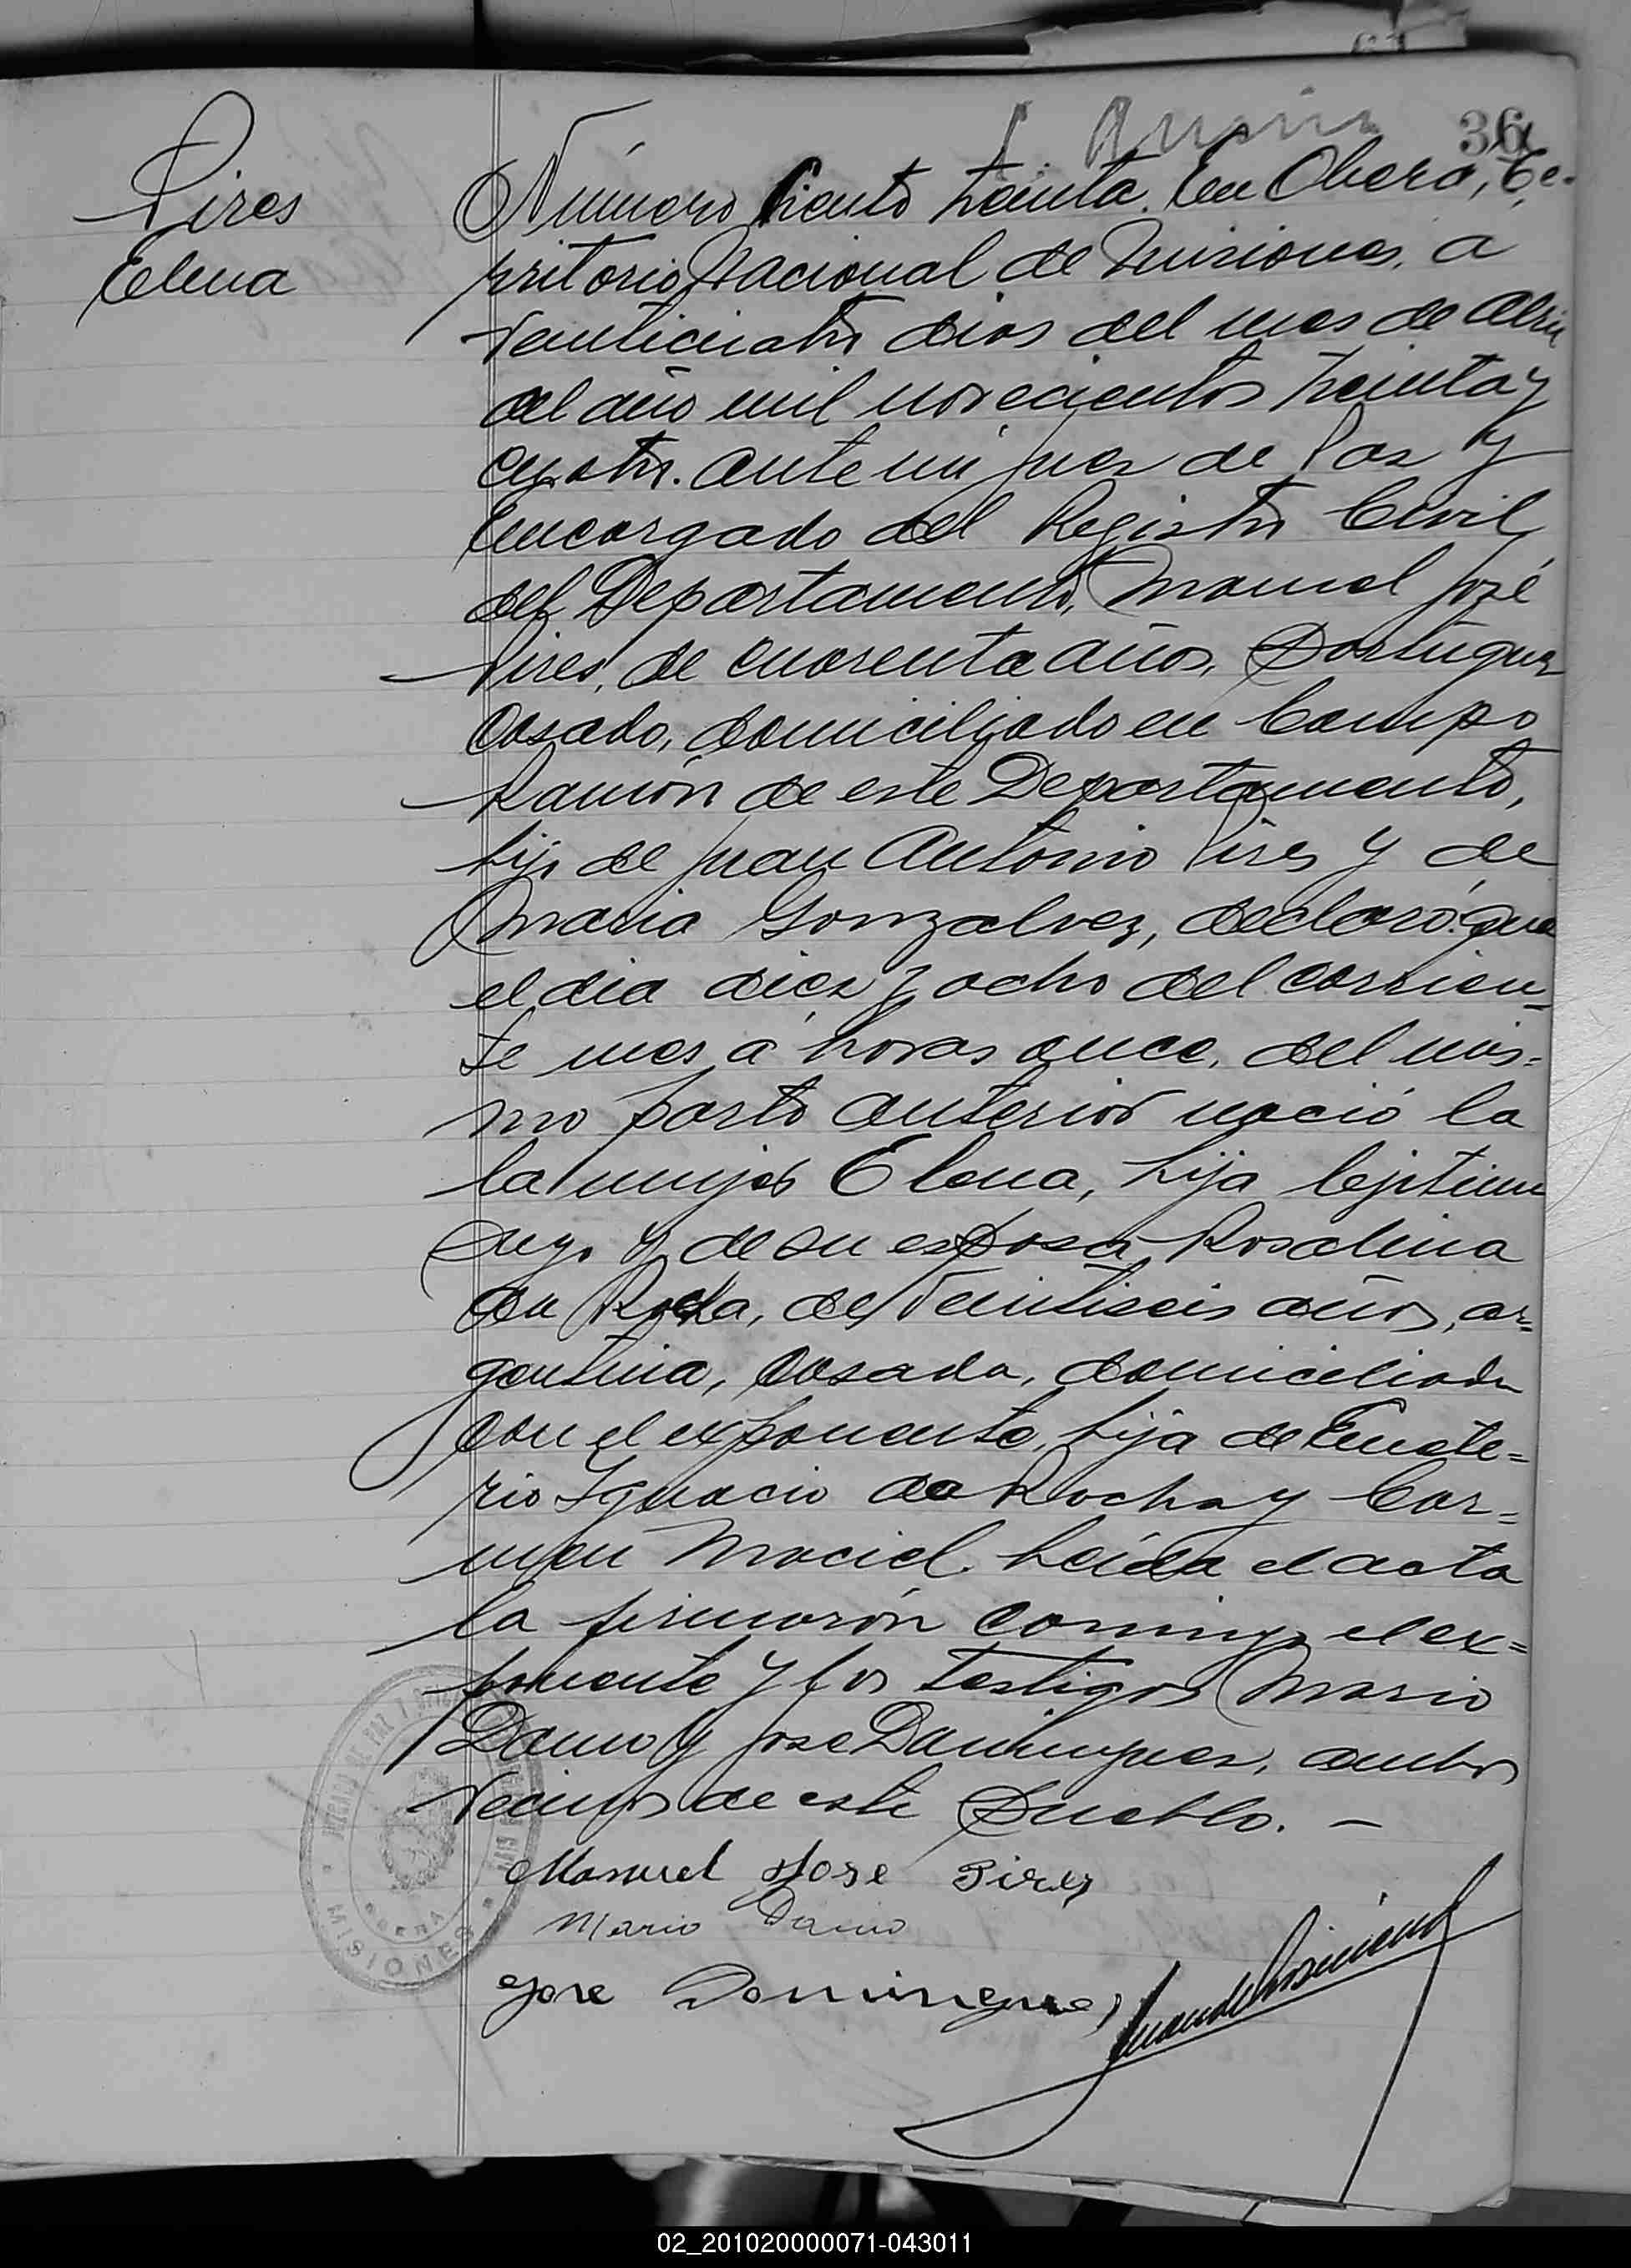 36
Pires
Elena
Número Ciento treinta. En Oberá, Te-
rritorio Nacional de Misiones, a
veinticuatro dias del mes de Abril
del año mil novecientos treinta y
cuatro. Ante mi Juez de Paz y
Encargado del Registro Civil
del Departamento, Manuel José
Pires, de cuarenta años, Portuguez
casado, domiciliado en Campo
Ramón de este Departamento,
hijo de Juan Antonio Pires y de
Maria Gonzalvez, declaró: que
el dia diez y ocho del corrien-
te mes a horas once, del mis-
mo parto anterior nació la
la mujer Elena, hija lejitima
suya y de su esposa, Rosalina
da Rocha, de veintiseis años, ar-
gentina, casada, domiciliada
con el exponente, hija de Emete-
rio Ignacio da Rocha y Car-
men Maciel. Leída el acta
la firmarón conmigo el ex-
ponente y los testigos Mario
Damo y José Dominguez, ambos
vecinos de este Pueblo. —
Manuel José Pires
Mario Damo
José Dominguez
JUZGADO DE PAZ
OBERA
MISIONES
02_201020000071-043011